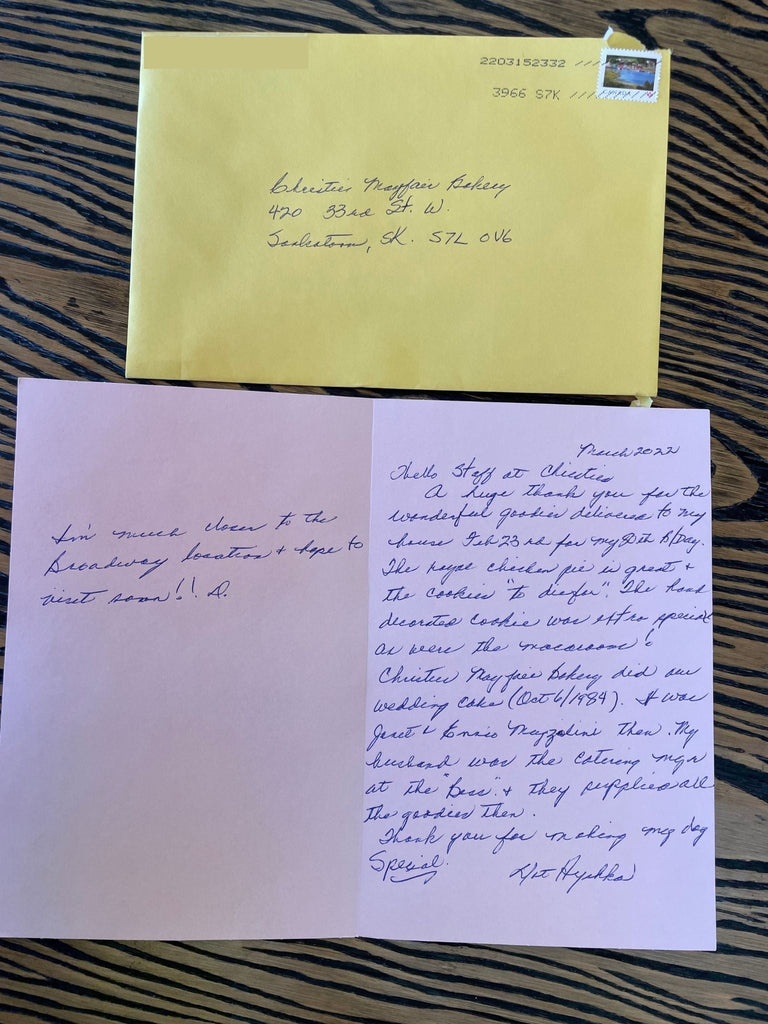 2203152332
3966 S7K
Christies Mayfair Bakery
420 33rd St. W.
Saskatoon, SK. S7L 0V6
I'm much closer to the
Broadway location & hope to
visit soon!! D.
March 2022
Hello Staff at Christies
A huge thank you for the
wonderful goodies delivered to my
house Feb 23rd for my B/Day.
The royal chicken pie is great &
the cookies "to die for". The hand
decorated cookie was extra special
as were the macaroons!
Christies Mayfair Bakery did our
wedding cake (Oct 6/1984). It was
Janet & Ennio Muzzolini then. My
husband was the catering mgr
at the "Bess" & they supplied all
the goodies then.
Thank you for making my day
Special.
Dot